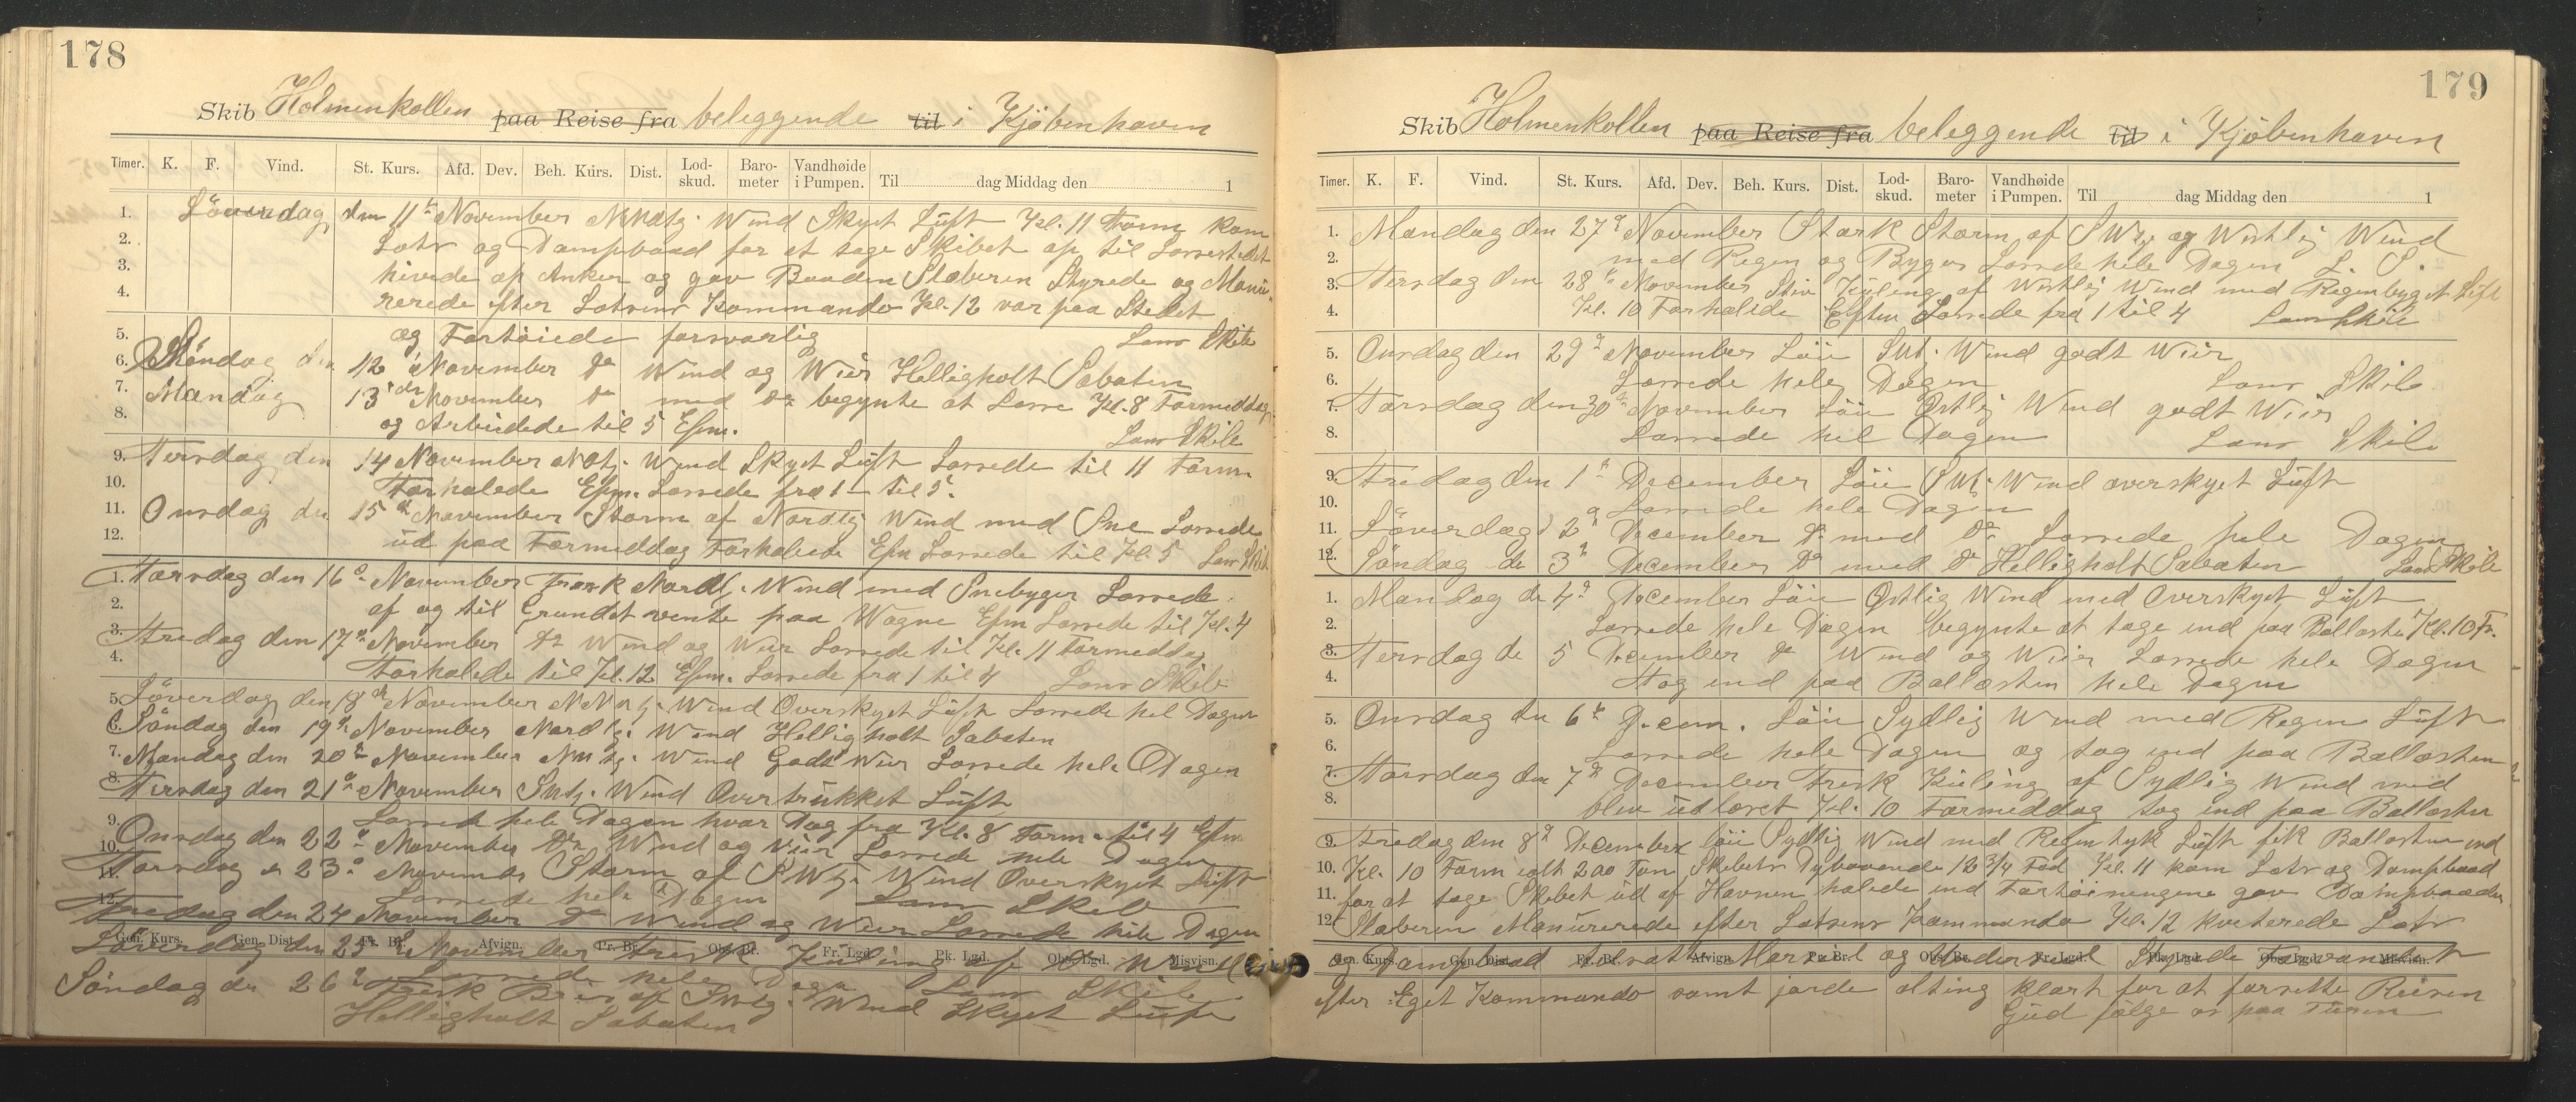 178
Skib Holmenkollen paa Reise fra beleggende til i Kjöbenhavn
Timer. K. F. Vind. St. Kurs. Afd. Dev. Beh. Kurs. Dist. Lod-skud. Baro-meter Vandhøide i Pumpen. Til dag Middag den 1
1. Löverdag den 11te November Wind Skyet Lüft Kl. 11 Form kom
2. Lots og Dampbaad for at tage Skibet op til Lossestedet
3. hivede op Anker og gav Baaden Slæberen Styrede og Manü-
4. rerede efter Lotsens Kommando Kl. 12 var paa Stedet
5. og Fortöiede forsvarlig Lens Skib
6. Söndag den 12 November Do Wind og Wier Helligholt Sabaten
7. Mandag 13de November Do med Do begynte at Losse Kl. 8 Formiddag
8. og Arbeidede til 5 Efm. Lens Skib
9. Tersdag den 14 November Wind Skyet Lüft Lossede til 11 Form
10. Forhalede Efm. Lossede fra 1 til 5.
11. Onsdag den 15de November Storm af Nordlig Wind med Sne Lossede
12. üd paa Formiddag Forhalede Efm Lossede til Kl 5 Lens Skib
1. Torsdag den 16de November Frisk Nordl. Wind med Snebyger Lossede
2. af og til Grundet vente paa Wogne Efm Lossede til Kl. 4
3. Fredag den 17de November Do Wind og Wier Lossede til Kl. 11 Formeddag
4. Forhalede til Kl. 12 Efm. Lossede fra 1 til 4 Lens Skib
5. Löverdag den 18de November Wind Overskyet Lüft Lossede hel Dagen
6. Söndag den 19de November Nordlig Wind Helligholt Sabaten
7. Mandag den 20de November Wind Godt Wier Lossede hele Dagen
8. Tirsdag den 21de November Wind Overtrükket Lüft
9. Lossed hele Dagen hvar Dag fra Kl. 8 Form. til 4 Efm
10. Onsdag den 22de November Do Wind og Wier Lossede hele Dagen
11. Torsdag d 23de November Storm af Wind Overskyet Lüft
12. Lossede hele Dagen Lens Skib
Fredag den 24 November Do Wind og Wier Lossede hele Dagen
Gen. Kurs. Gen. Dist. Fr. Br. Afvign. Pr. Br. Obs. Br. Fr. Lgd. Pk. Lgd. Obs. Lgd. Misvisn.
Löverdag den 25 November Frisk Küling af Wind
Lossede hele Dagen Lens Skib
Söndag den 26de Frisk Bris af Wind Skyet Lüft
Helligholt Sabaten
179
Skib Holmenkollen paa Reise fra beleggende til i Kjöbenhavn
Timer. K. F. Vind. St. Kurs. Afd. Dev. Beh. Kurs. Dist. Lod-skud. Baro-meter Vandhøide i Pumpen. Til dag Middag den 1
1. Mandag den 27de November Stærk Storm af og Westlig Wind
2. med Regen og Byger Lossede hele Dagen L. S.
3. Tersdag den 28de November Stiv Küling af Westlig Wind med Regenbyget Lüft
4. Kl. 10 Forhalede Eftm Lossede fra 1 til 4 Lens Skib
5. Onsdag den 29de November Löii Wind godt Wier
6. Lossede hele Dagen Lens Skib
7. Torsdag den 30de November Löii Östlig Wind godt Wier
8. Lossede hel Dagen Lens Skib
9. Fredag den 1te December Löii Wind overskyet Lüft
10. Lossede hele Dagen
11. Löverdag d 2de December Do med Do Lossede hele Dagen
12. Söndag de 3de December Do med Do Helligholt Sabaten Lens Skib
1. Mandag de 4de December Löii Östlig Wind med Overskyet Lüft
2. Lossede hele Dagen begynte at tage ind paa Ballasten Kl. 10 F.
3. Tersdag de 5 December Do Wind og Wier Lossede hele Dagen
4. tog ind paa Ballasten hele Dagen
5. Onsdag den 6te Decem. Löii Sydlig Wind med Regen Lüft
6. Lossede hele Dagen og tog ind paa Ballasten
7. Torsdag den 7de December Frisk Küling af Sydlig Wind med
8. blev üdlosset Kl. 10 Formeddag tog ind paa Ballasten
9. Fredag den 8de December löii Sydlig Wind med Regen tyk Lüft fik Ballasten ind
10. Kl. 10 Form ialt 200 Ton Skibets Dybgaaende 12 3/4 Fod Kl. 11 kom Lots og Dampbaad
11. for at tage Skibet üd af Havnen halede ind Fortöiningene gav Dampbaaden
12. Slæberen Manürerede efter Lotsens Kommando Kl. 12 kviterede Lots
Gen. Kurs. Gen. Dist. Fr. Br. Afvign. Pr. Br. Obs. Br. Fr. Lgd. Pk. Lgd. Obs. Lgd. Misvisn.
og Dampbaad tilsatte Mersseil og Underseil Styrede Farvandet
efter Eget Kommando samt jorde alting klart for at forsette Reisen
Güd fölge os paa Türen